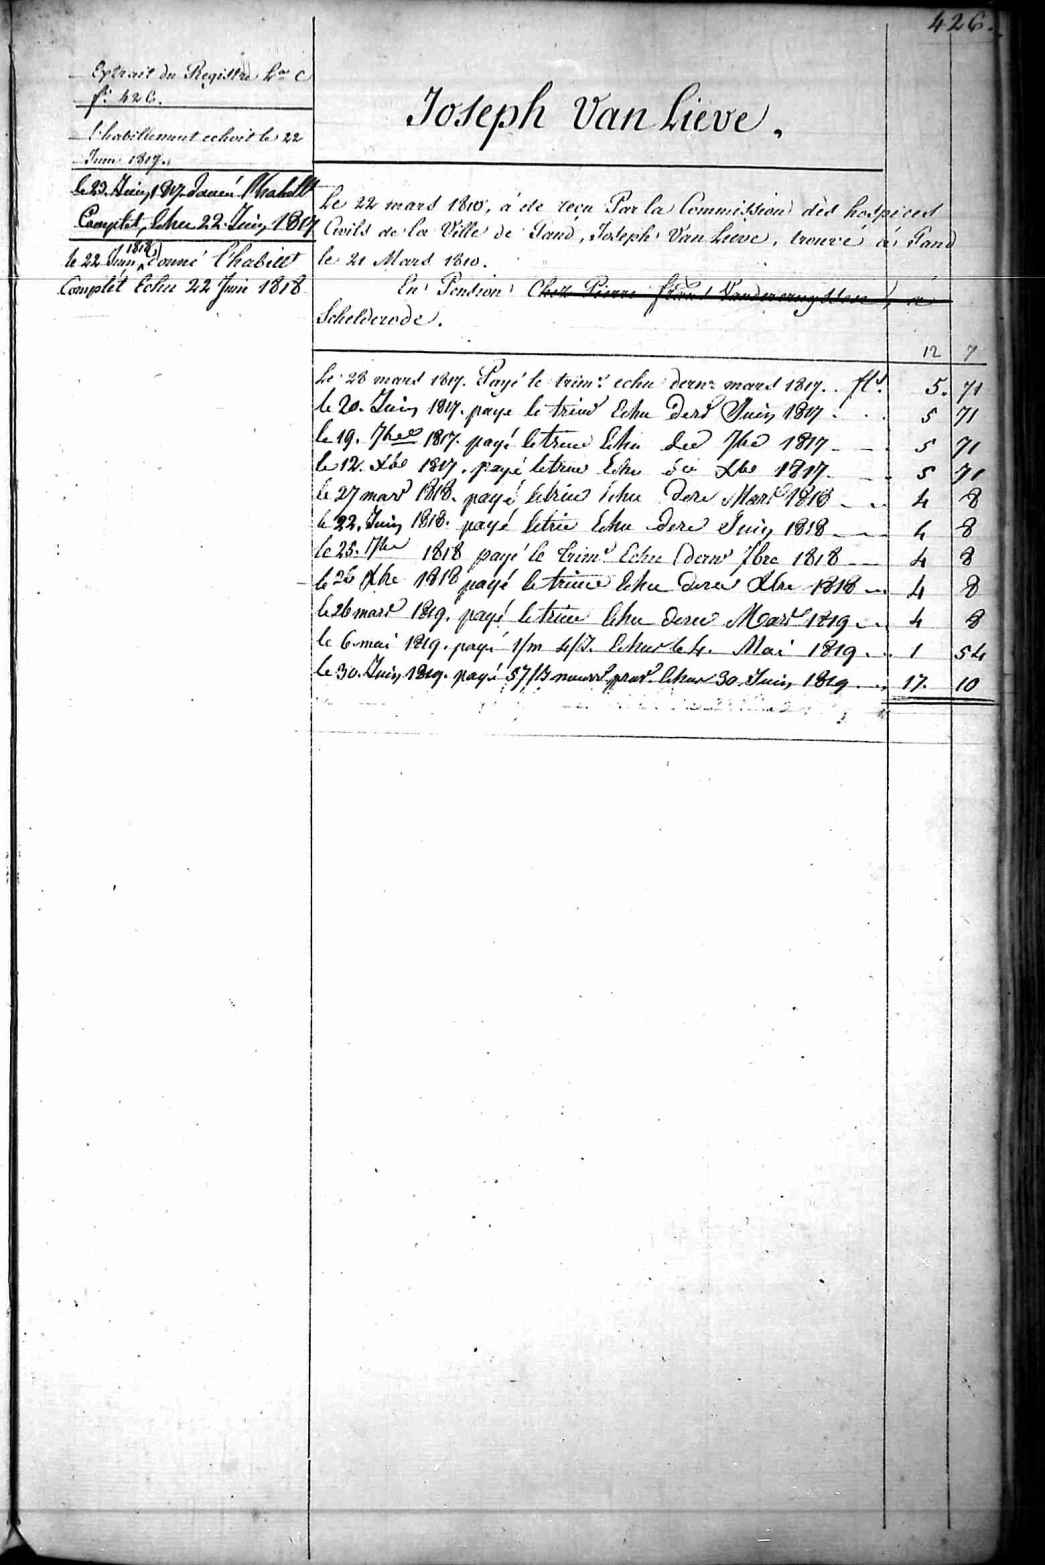 426.
Extrait du Registre L.re C
f.° 426.
l'habillement echoit le 22
Juin 1817.
le 23. Juin 1817 donné l'habill.t
Complet, Echu 22 Juin 1817
le 22 Juin 1818 donné l'habill.t
Complet Echu 22 Juin 1818
Joseph Van Lieve.
Le 22 mars 1810, à ete recu Par la Commission des hospices
Civils de la Ville de Gand, Joseph Van Lieve, trouvé à Gand
le 21 Mars 1810.
En Pension Chez Pierre à
Schelderode.
12 7
Le 28 mars 1817. Payé le trim.e echu dern.r mars 1817. fl.s 5. 71
le 20. Juin 1817. payé le trim Echu der Juin 1817 5 71
le 19. 7bre 1817. payé le trim Echu 7bre 1817 5 71
le 12. Xbre 1817. payé le trim Echu Xbre 1817 5 71
le 27 mars 1818. payé le trim echu der Mars 1818 4 8
le 22. Juin 1818. payé le trim Echu der Juin 1818 4 8
le 25. 7bre 1818 payé le trim.e Echu dern.r 7bre 1818 4 8
le 26 Xbre 1818 payé le trim Echu der Xbre 1818 4 8
le 26 mars 1819. payé le trim Echu der Mars 1819 4 8
le 6 mai 1819. payé 1/m 4/J. Echus le 4. Mai 1819 1 54
le 30. Juin 1819. payé 57/J nourr. Echus 30 Juin 1819 17. 10